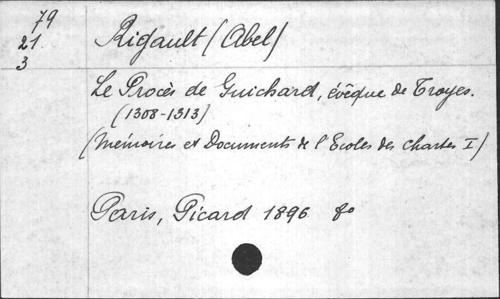 79
21
3
Rigault (Abel)
Le Procès de Guichard, évêque de Troyes.
(1308-1313)
(Mémoires et Documents de l'Ecoles des Chartes I)
Paris, Picard 1896 8o